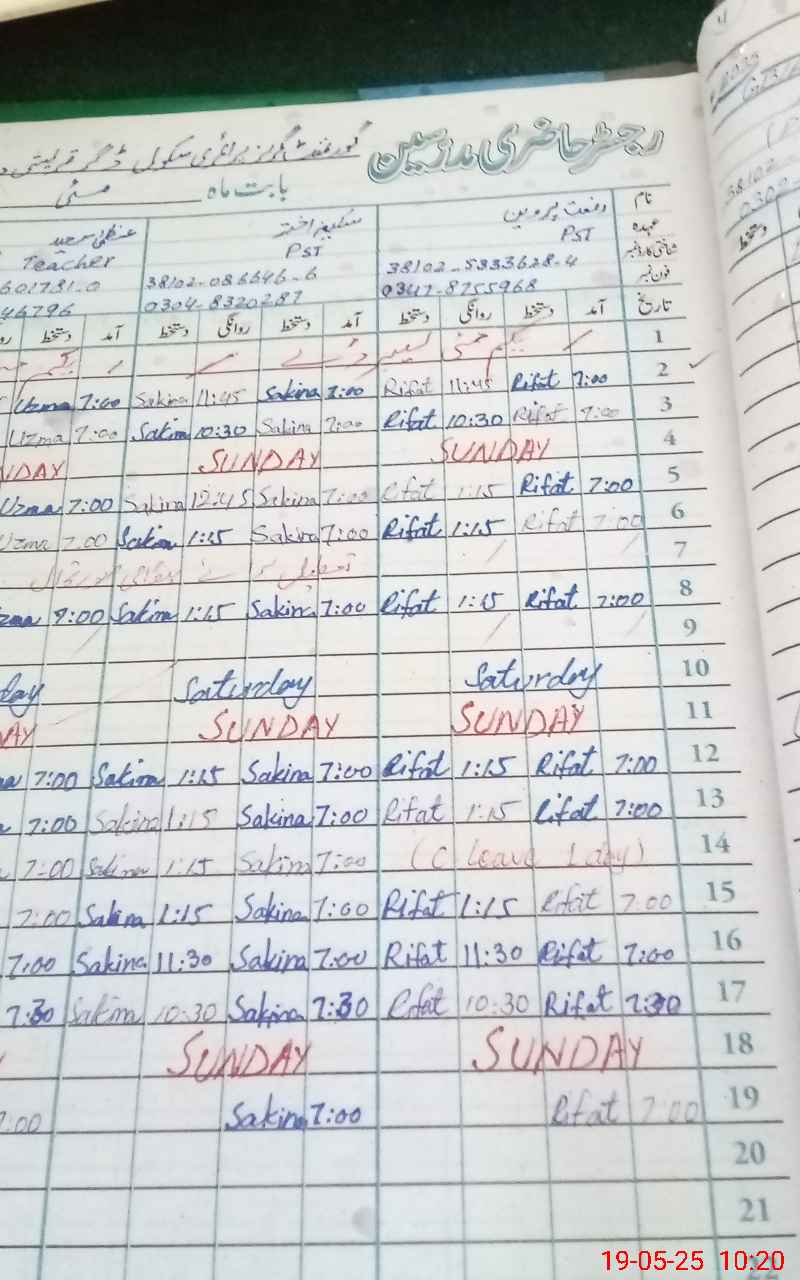 رجسٹر حاضری مدرسین
گورنمنٹ گرلز پرائمری سکول ڈگر قریشی
بابت ماہ مئی
نام رفعت پروین سکینہ اختر عظمیٰ سعید
عہدہ PST PST Teacher
شناختی کارڈ نمبر 38102-5333628-4 38102-086646-6 601781-0
فون نمبر 0347-8755968 0304-8320287 46796
تاریخ آمد دستخط روانگی دستخط آمد دستخط روانگی دستخط آمد دستخط
1 یکم مئی لیبر ڈے یکم
2 7:00 Rifat 11:45 Rifat 7:00 Sakina 11:45 Sakina 7:00 Uzma
3 7:00 Rifat 10:30 Rifat 7:00 Sakina 10:30 Sakina 7:00 Uzma
4 SUNDAY SUNDAY NDAY
5 7:00 Rifat 1:15 Rifat 7:00 Sakina 12:45 Sakina 7:00 Uzma
6 7:00 Rifat 1:15 Rifat 7:00 Sakina 1:15 Sakina 7:00 Uzma
7 تعطیل
8 7:00 Rifat 1:15 Rifat 7:00 Sakina 1:15 Sakina 7:00 zma
9
10 Saturday Saturday day
11 SUNDAY SUNDAY AY
12 7:00 Rifat 1:15 Rifat 7:00 Sakina 1:15 Sakina 7:00
13 7:00 Rifat 1:15 Rifat 7:00 Sakina 1:15 Sakina 7:00
14 (C Leave 1 day) 7:00 Sakina 1:15 Sakina 7:00
15 7:00 Rifat 1:15 Rifat 7:00 Sakina 1:15 Sakina 7:00
16 7:00 Rifat 11:30 Rifat 7:00 Sakina 11:30 Sakina 7:00
17 7:30 Rifat 10:30 Rifat 7:30 Sakina 10:30 Sakina 7:30
18 SUNDAY SUNDAY
19 7:00 Rifat 7:00 Sakina 7:00
20
21
22
19-05-25 10:20